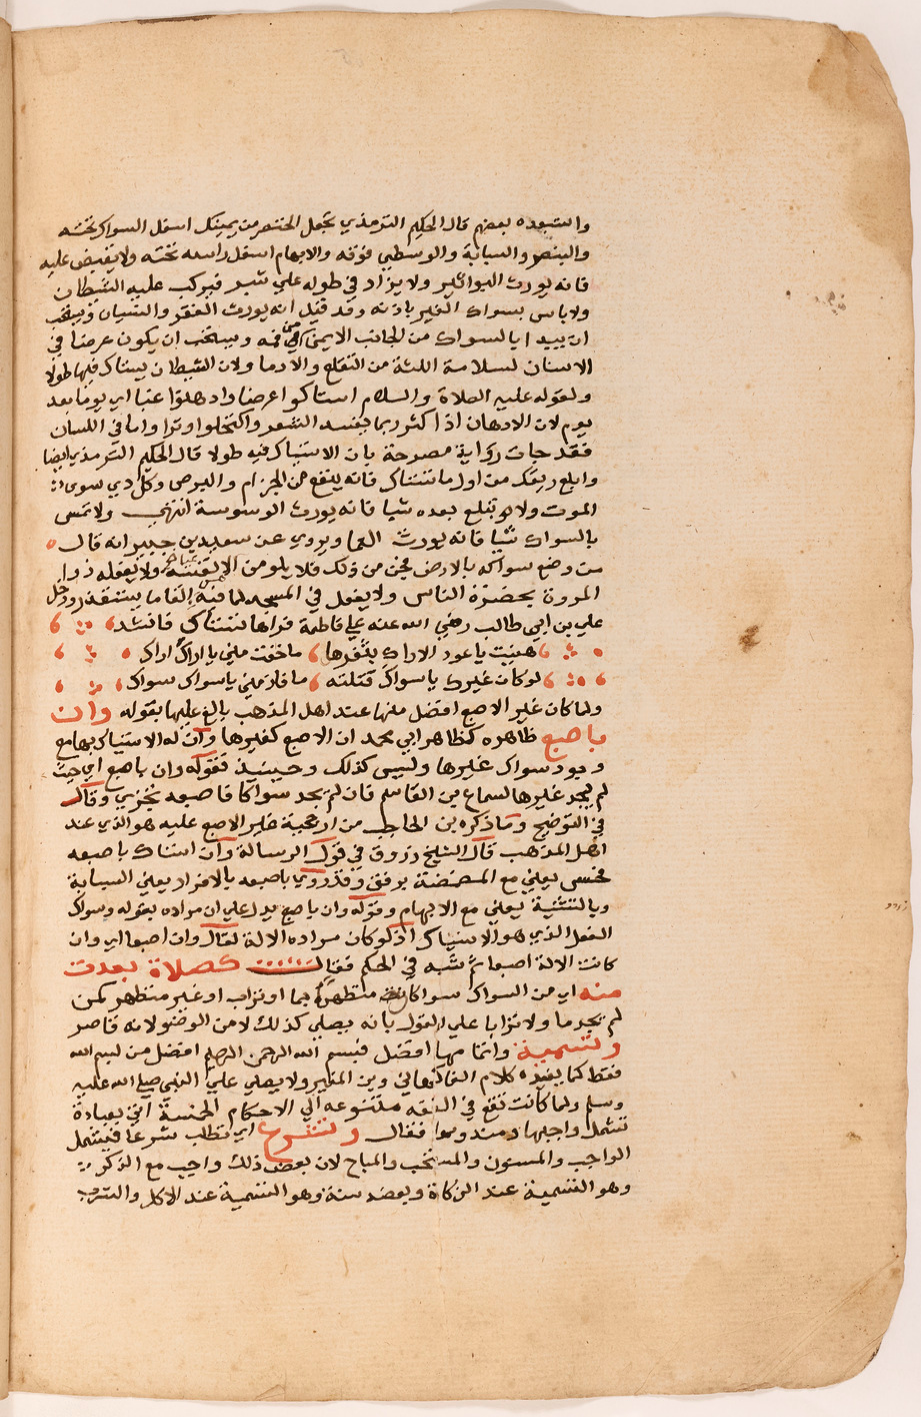 واستبعده بعضهم قال الحكيم الترمذي تجعل الخنصر من يمينك اسفل السواك تحته
والبنصر والسبابة والوسطي فوقه والابهام اسفل راسه تحته ولا يقبض عليه
فانه يورث البواسير ولا يزاد في طوله علي شبر فيركب عليه الشيطان
ولا باس بسواك الغير باذنه وقد قيل انه يورث الفقر والنسيان ويستحب
ان يبدا بالسواك من الجانب الايمن من فمه ويستحب ان يكون عرضا في
الاسنان لسلامة اللثة من التقلع والادما ولان الشيطان يستاك فيها طولا
ولقوله عليه الصلاة والسلام استاكوا عرضا وادهنوا غبا اي يوما بعد
يوم لان الادهان اذا كثر ربما يفسد الشعر واكتحلوا وترا واما في اللسان
فقد جات رواية مصرحة بان الاستياك فيه طولا قال الحكيم الترمذي ايضا
وابلع ريقك من اول ما تستاك فانه ينفع من الجزام والبرص وكل دي سوى
الموت ولا تبتلع بعده شيا فانه يورث الوسوسة انتهي ولا تمس
بالسواك شيا فانه يورث العما ويروي عن سعيد بن جبير انه قال
من وضع سواكه بالارض فجن من ذلك فلا يلومن الا نفسه ولا يفعله ذوا
المروة بحضرة الناس ولا يفعل في المسجد لما فيه من القا ما يستقذر ودخل
علي بن ابي طالب رضي الله عنه علي فاطمة فراها تستاك فانشد
هنيت يا عود الاراك بثغرها ما خفت مني يا اراك اراك
لو كان غيرك يا سواك قتلته ما فاز مني يا سواك سواك
ولما كان غير الاصبع افضل منها عند اهل المذهب بالغ عليها بقوله وان
باصبع ظاهره كظاهر ابي محمد ان الاصبع كغيرها وان له الاستياك بها مع
وجود سواك غيرها وليس كذلك وحينيذ فقوله وان باصبع اي حيث
لم يجد غيرها لسماع بن القاسم فان لم يجد سواكا فاصبعه تجزي وقال
في التوضيح وما ذكره بن الحاجب من ارجحية غير الاصبع عليه هو الذي عند
اهل المذهب قال الشيخ زروق في قول الرسالة وان استاك باصبعه
فحسن يعني مع المضمضة برفق وقد روي باصبعه بالافراد يعني السبابة
وبالتثنية يعني مع الابهام وقوله وان باصبع يدل علي ان مراده بقوله وسواك
الفعل الذي هو الاستياك اذ لو كان مراده الالة لقال وان اصبعا اي وان
كانت الالة اصبعا ثم شبه في الحكم فقال كصلاة بعدت
منه اي من السواك سواكان متطهرا بما او تراب او غير متطهر كمن
لم يجد ما ولا ترابا علي القول بانه يصلي كذلك لا من الوضو لانه قاصر
وتسمية واتمامها افضل فبسم الله الرحمن الرحيم افضل من بسم الله
فقط كما يفيده كلام الفاكهاني وبن المنير ولا يصلي علي النبي صلي الله عليه
وسلم ولما كانت تقع في الفقه متنوعه الي الاحكام الخمسة اتي بعبادة
تشمل واجبها ومندوبها فقال وتشرع اي تطلب شرعا فيشمل
الواجب والمسنون والمستحب والمباح لان بعض ذلك واجب مع الذكر
وهو التسمية عند الزكاة وبعضه سنة وهو التسمية عند الاكل والشرب